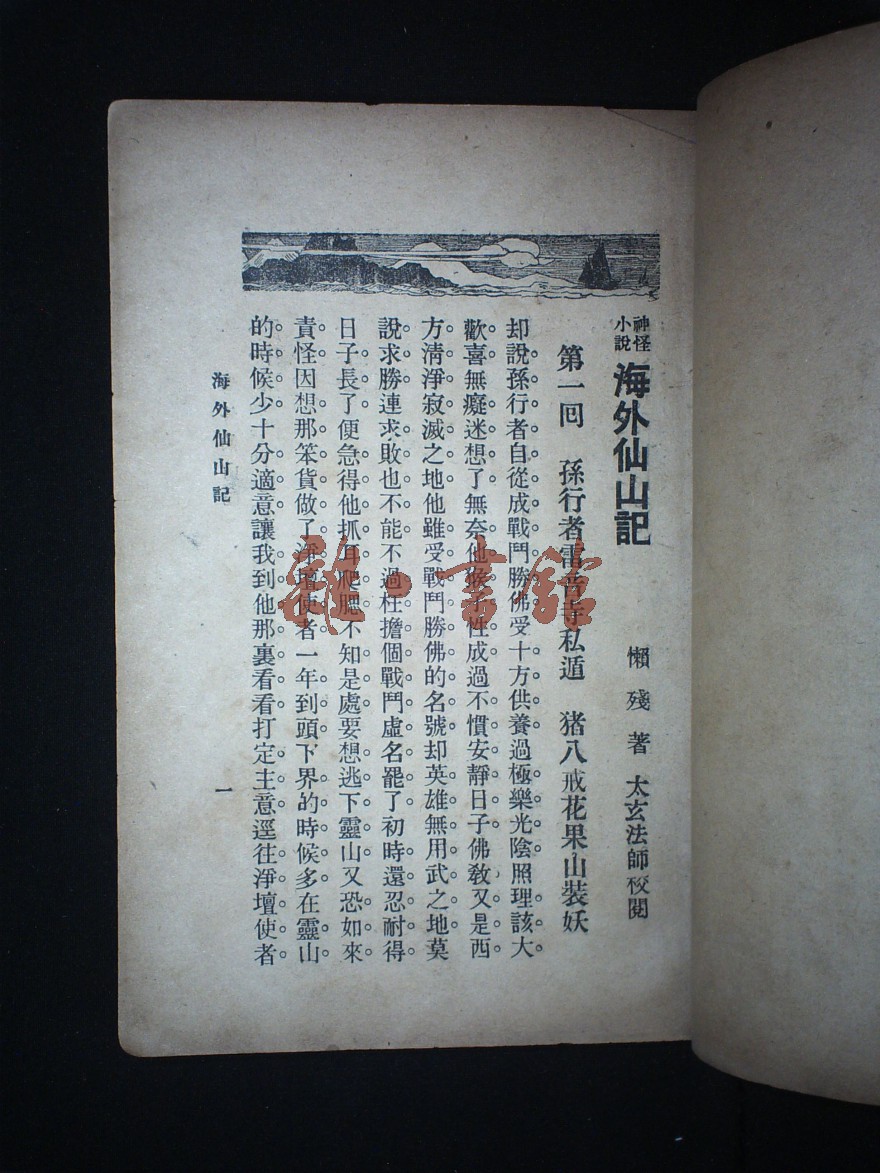 神怪
小說
海外仙山記
懶殘著 太玄法師校閱
第一回 孫行者雷音寺私遁 猪八戒花果山裝妖
却說孫行者自從成戰鬥勝佛受十方供養過極樂光陰照理該大
歡喜無癡迷想了無奈他猴子性成過不慣安靜日子佛教又是西
方清淨寂滅之地他雖受戰鬥勝佛的名號却英雄無用武之地莫
說求勝連求敗也不能不過枉擔個戰鬥虛名罷了初時還忍耐得
日子長了便急得他抓耳爬腮不知是處要想逃下靈山又恐如來
責怪因想那笨貨做了淨壇使者一年到頭下界的時候多在靈山
的時候少十分適意讓我到他那裏看看打定主意逕往淨壇使者
海外仙山記
一
雜·書館